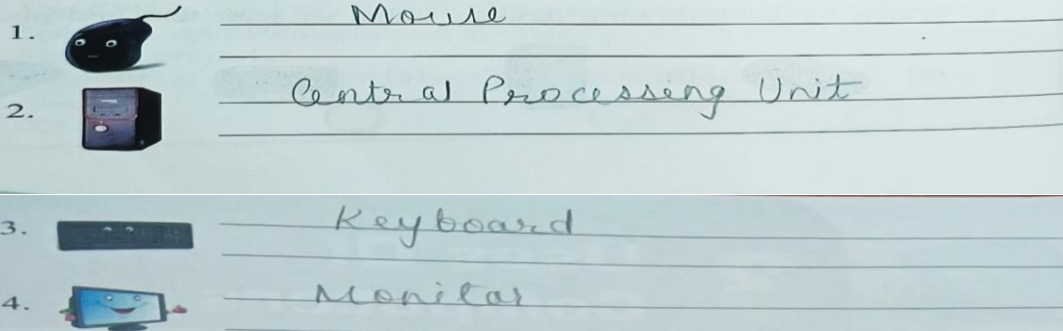 1. Mouse
2. Central Processing Unit
3. Keyboard
4. Monitar